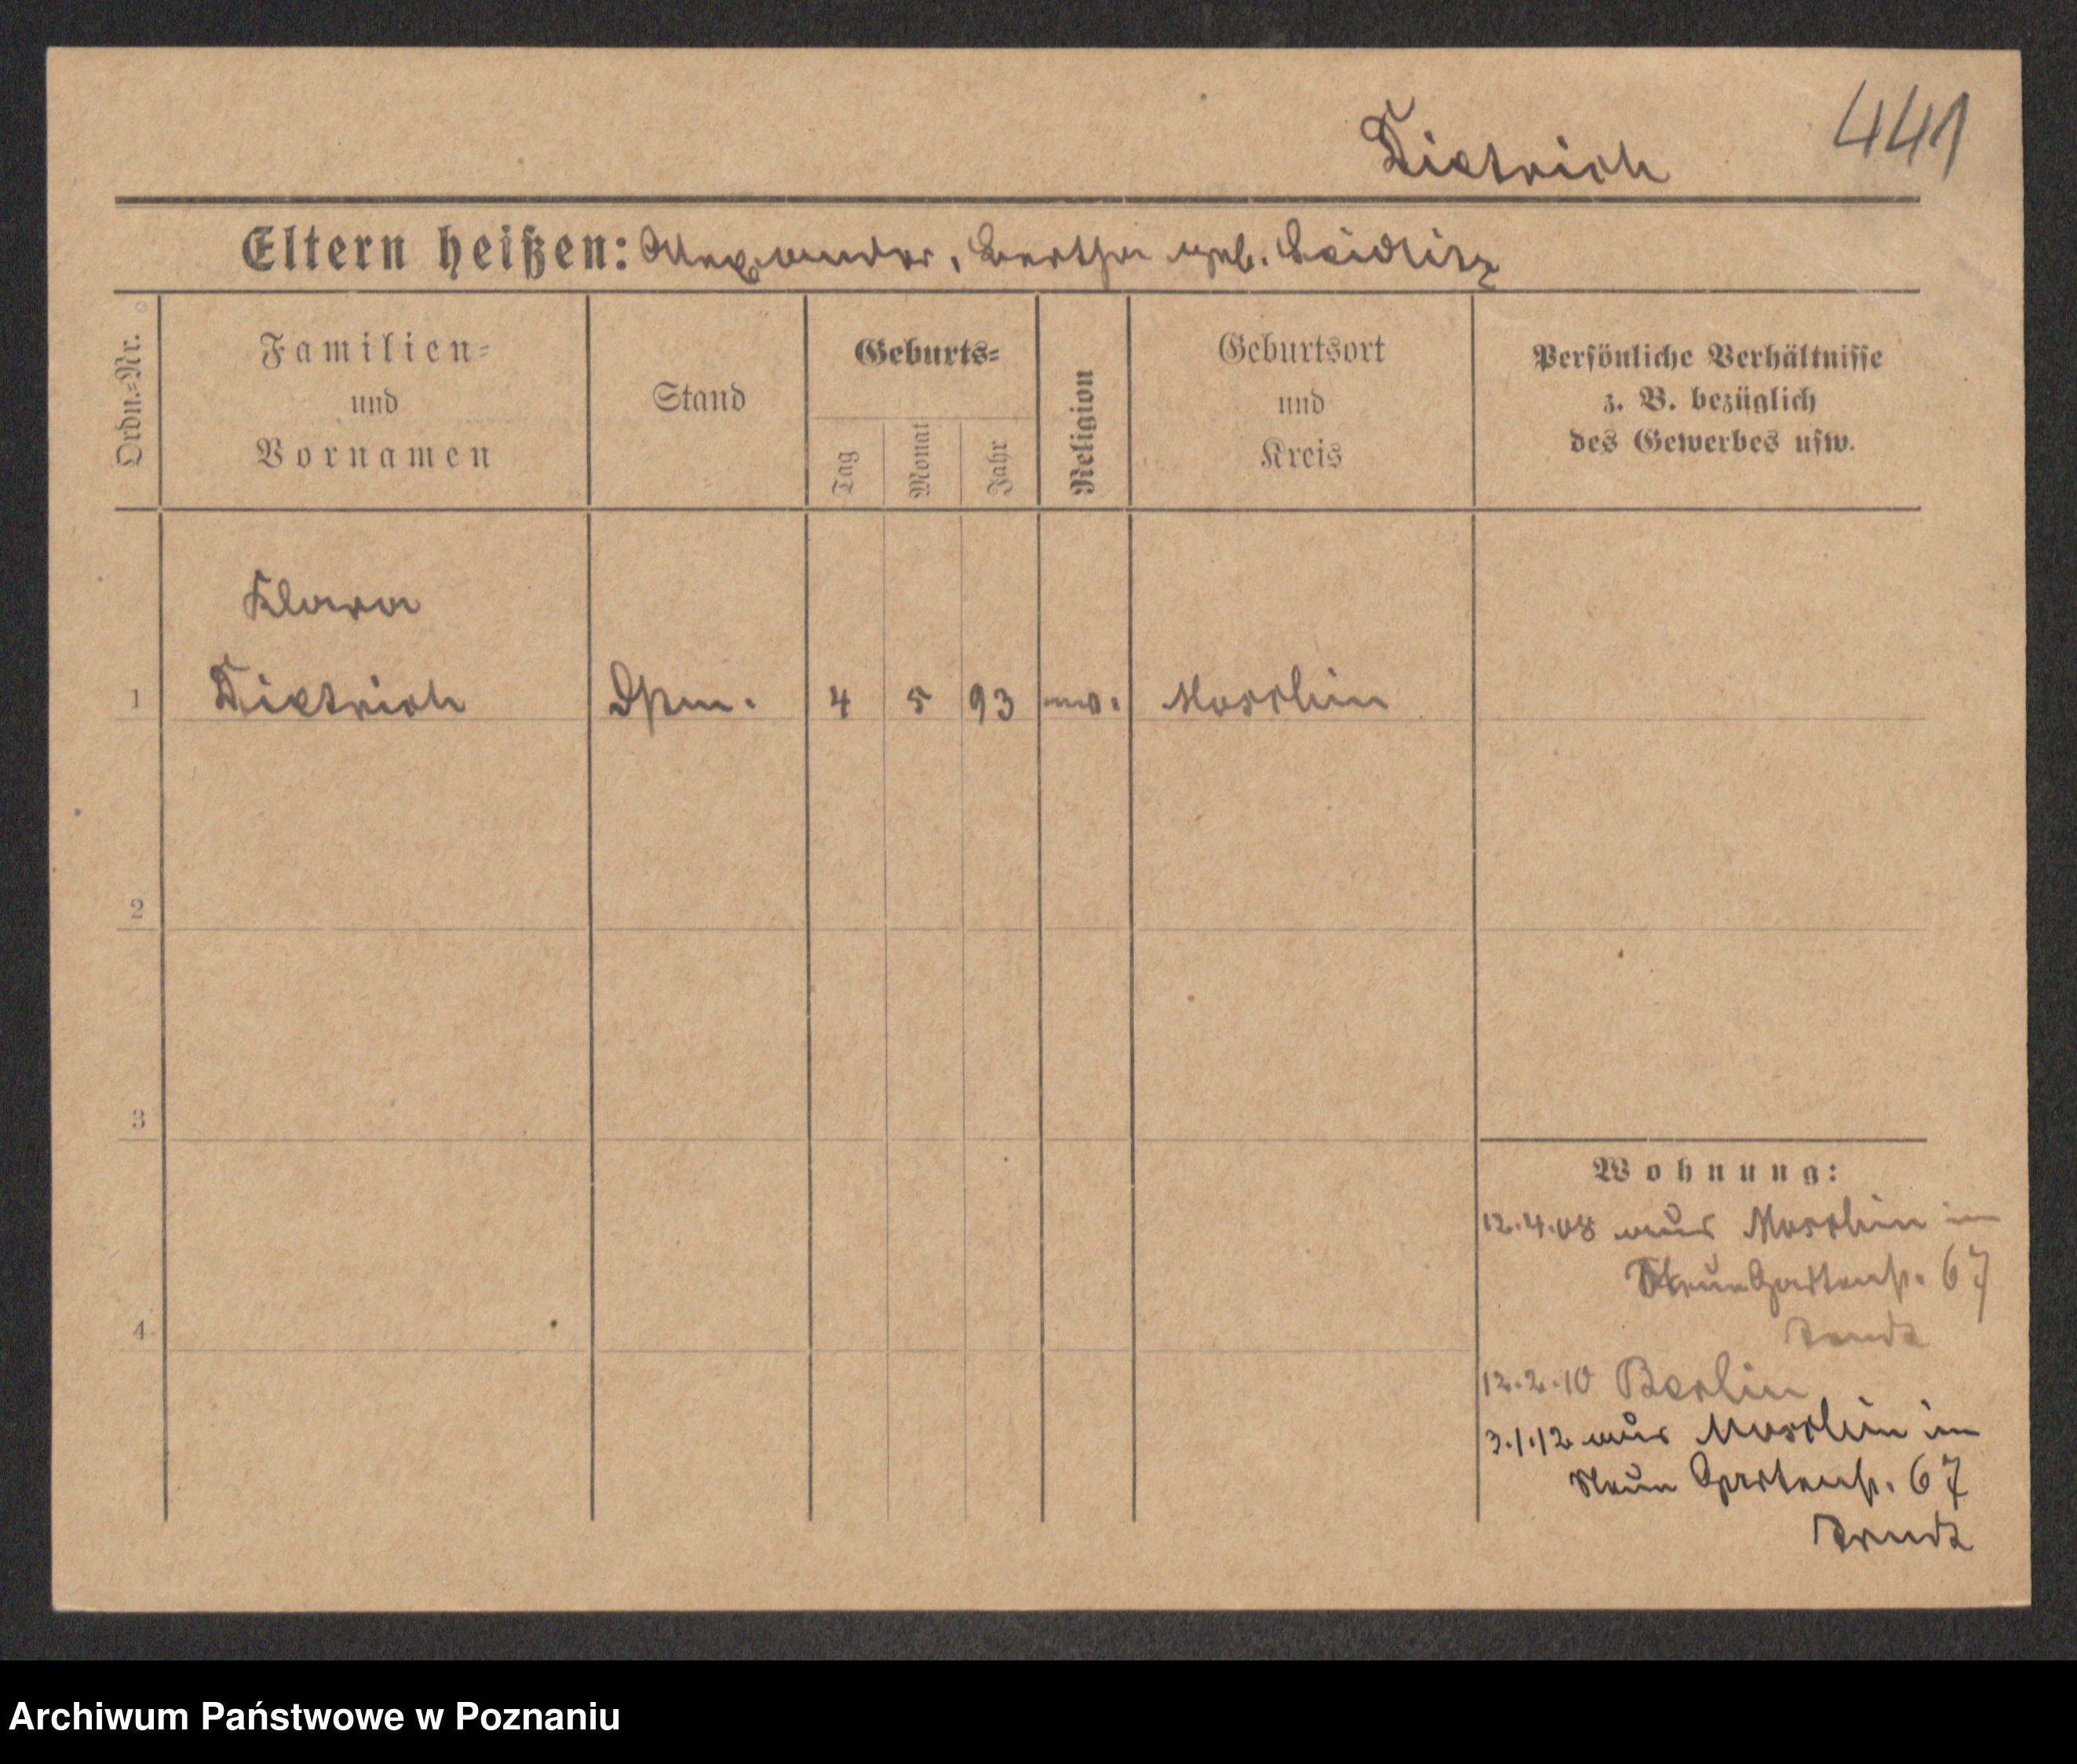 441
Dietrich
Eltern heißen: Alexander, Bertha geb. Seidlitz
Ordn.=Nr.
Familien=
und
Vornamen
Stand
Geburts=
Tag
Monat
Jahr
Religion
Geburtsort
und
Kreis
Persönliche Verhältnisse
z. B. bezüglich
des Gewerbes usw.
Klara
1 Dietrich 4 5 93 Moschin
2
3
4
Wohnung:
12.4.08 aus Moschin in
Neue Gartenstr. 67
12.2.10 Berlin
3.1.12 aus Moschin in
Neue Gartenstr. 67
Archiwum Państwowe w Poznaniu